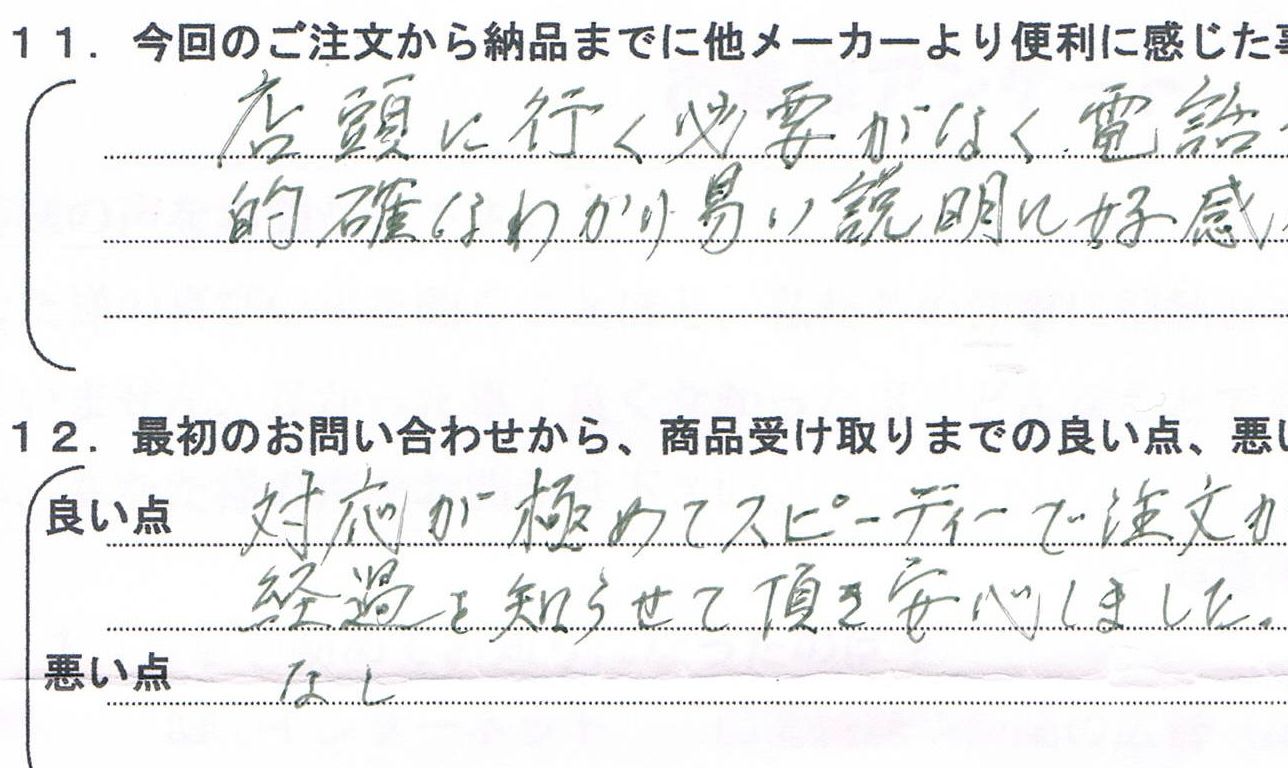 11. 今回のご注文から納品までに他メーカーより便利に感じた事
店頭に行く必要がなく電話
的確なわかり易い説明に好感
12. 最初のお問い合わせから、商品受け取りまでの良い点、悪い
良い点 対応が極めてスピーディーで注文か
経過を知らせて頂き安心しました。
悪い点 なし